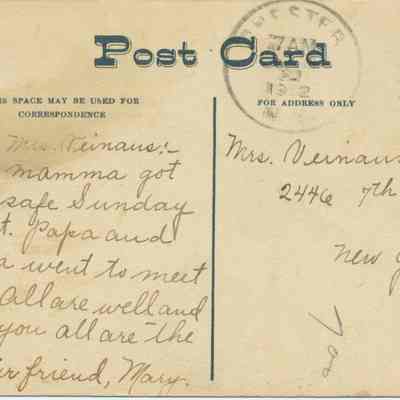 Post Card
IS SPACE MAY BE USED FOR
CORRESPONDENCE
FOR ADDRESS ONLY
7 AM
Mrs. Veinaus:-
mamma got
safe Sunday
t. Papa and
a went to meet
All are well and
you all are the
ir friend, Mary.
Mrs. Veinaus
2446 7th
New